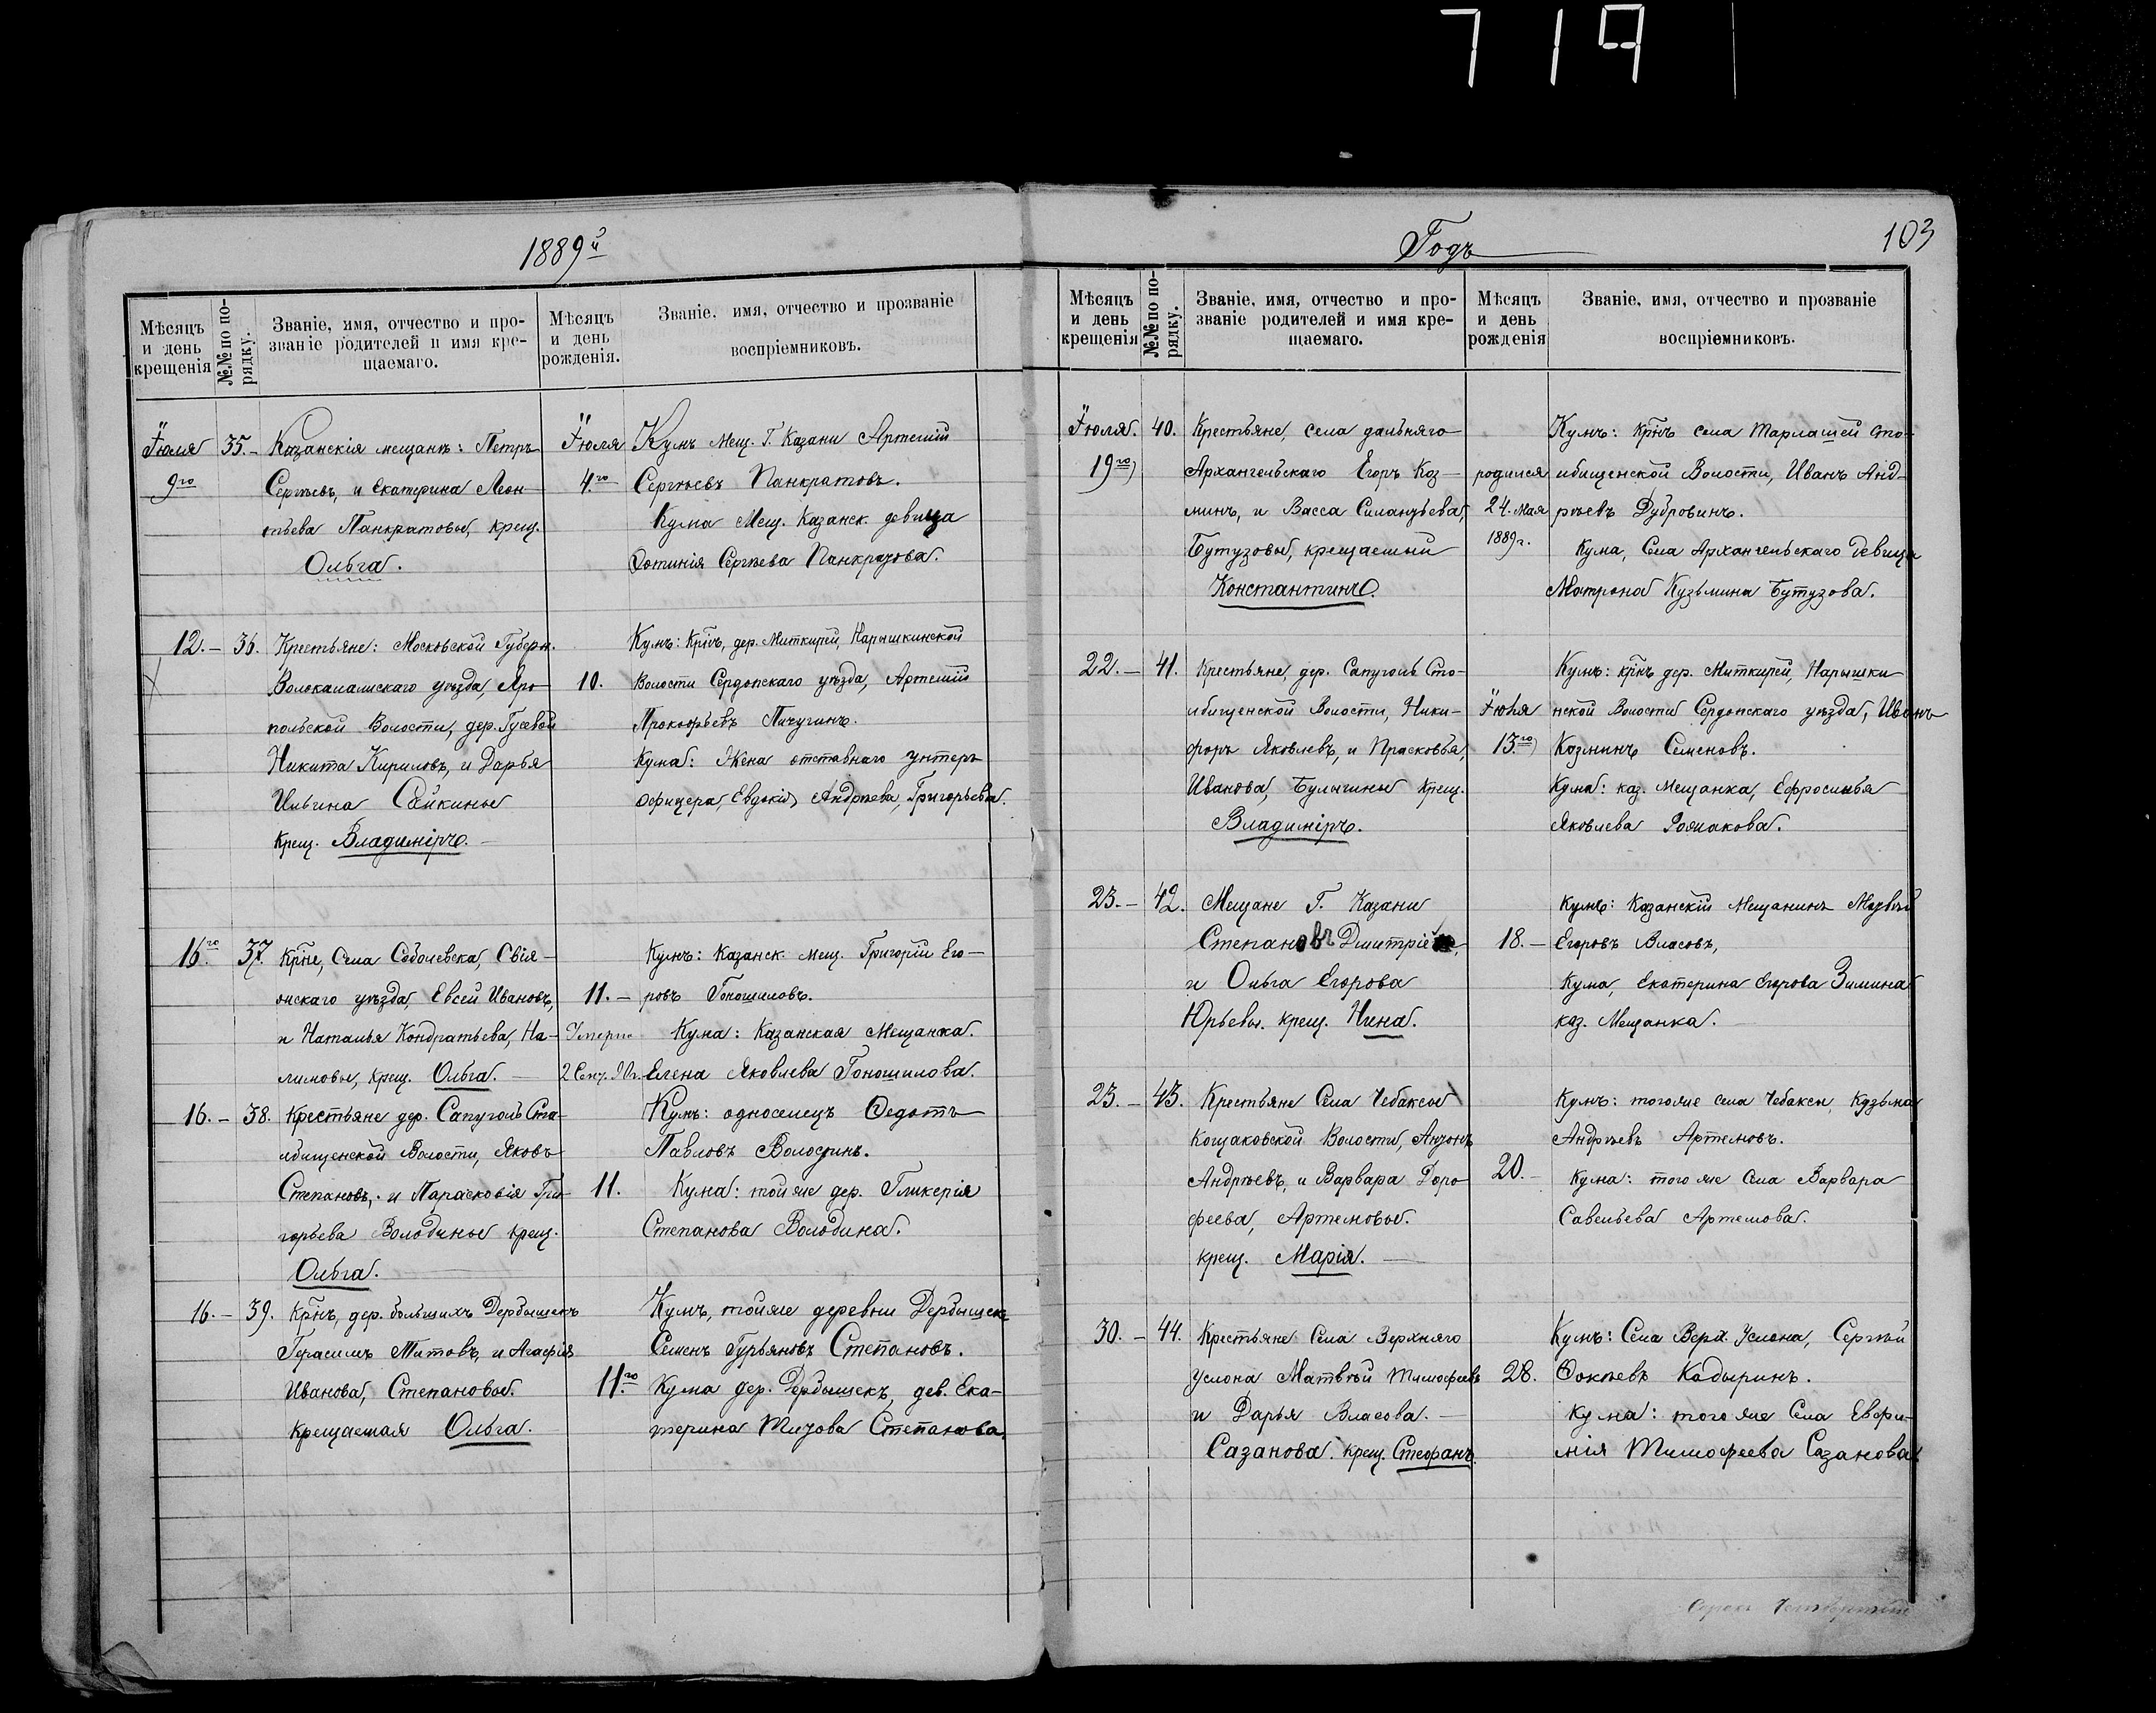 719
1889й
Мѣсяцъ и день крещенія
№№ по порядку.
Званіе, имя, отчество и про-
званіе родителей и имя кре-
щаемаго.
Мѣсяцъ
и день
рожденія.
Званіе, имя, отчество и прозваніе
воспріемниковъ.
Іюля 35.
9го
Казанскія мещане: Петръ
Сергѣевъ, и Екатерина Леон-
тьева Панкратовы, крещ.
Ольга.
Іюля
4.го
Кумъ Мещ. Г. Казани Артемій
Сергѣевъ Панкратовъ.
Кума Мещ. Казанск. девица
Фотинія Сергѣева Панкратова.
12. – 36.
Крестьяне: Московской Губерн.
Волокаламскаго уѣзда, Яро-
польской Волости, дер. Гусевой
Никита Кириловъ, и Дарья
Ильина Сайкины
крещ. Владиміръ. –
10.
Кумъ: Кр̃нъ, дер. Миткирей, Нарышкинской
Волости Сердопскаго уѣзда, Артемій
Прокофьевъ Пичугинъ.
Кума: Жена отставнаго унтеръ
Офицера, Евдокія Андрѣева, Григорьева.
16.го 37.
Кр̃не, Села Соболевска, Свія-
жскаго уѣзда, Евсей Ивановъ,
и Наталья Кондратьева, На-
лимовы, крещ. Ольга. –
11. –
Кумъ: Казанск. мещ. Григорій Его-
ровъ Гоношиловъ.
Кума: Казанская Мещанка.
Елена Яковлева Гоношилова.
16. – 38.
Крестьяне дер. Сапуголь Сто-
лбищенской Волости, Яковъ
Степановъ, и Парасковія Гри-
горьева Володины крещ.
Ольга.
11.
Кумъ: односелецъ Федотъ
Павловъ Володинъ.
Кума: той же дер. Гликерія
Степанова Володина.
16. – 39.
Кр̃нъ, дер. большихъ Дербышекъ
Герасимъ Титовъ, и Агафія
Иванова, Степановы.
крещаемая Ольга.
11.го
Кумъ, той же деревни Дербышекъ
Семенъ Гурьяновъ Степановъ.
Кума дер. Дербышекъ, дев. Ека-
терина Титова Степанова.
Годъ
103
Мѣсяцъ
и день
крещенія
№№ по порядку.
Званіе, имя, отчество и про-
званіе родителей и имя кре-
щаемаго.
Мѣсяцъ
и день
рожденія
Званіе, имя, отчество и прозваніе
воспріемниковъ.
Іюля. 40.
19го
Крестьяне, села дальняго
Архангельскаго Егоръ Коз-
минъ, и Васса Силантьева,
Бутузовы, крещаемый
Константинъ.
родился
24. Мая
1889 г.
Кумъ: кр̃нъ села Тарлашей Сто-
лбищенской Волости, Иванъ Анд-
рѣевъ Дубровинъ.
Кума, Села Архангельскаго девица
Матрона Кузьмина Бутузова.
22. – 41.
Крестьяне, дер. Сапуголь Сто-
лбищенской Волости, Ники-
форъ Яковлевъ, и Прасковья,
Иванова, Булыгины крещ.
Владиміръ.
Іюля
13.го
Кумъ: кр̃нъ дер. Миткирей, Нарышки-
нской Волости Сердопскаго уѣзда, Иванъ
Козминъ Семеновъ.
Кума: каз. Мещанка, Ефросинья
Яковлева
23. – 42.
Мещане Г. Казани
Степановъ Дмитріе
и Ольга Егорова
Юрьевы. крещ. Нина.
18. –
Кумъ: Казанскій Мещанинъ
Егоровъ Власовъ,
Кума, Екатерина Егорова Зимина
каз. Мещанка.
23. – 43.
Крестьяне Села Чебаксы
Кощаковской Волости, Антонъ
Андрѣевъ, и Варвара Доро-
феева, Артемовы.
крещ. Марія. –
20. –
Кумъ: тогоже села Чебаксы, Кузьма
Андрѣевъ Артемовъ.
Кума: того же Села Варвара
Савельева Артемова.
30. – 44.
Крестьяне Села Верхняго
Услона Матвѣй Тимофеевъ
и Дарья Власова. –
Сазанова. крещ. Стефанъ.
28.
Кумъ: Села Верх. Услона, Сергѣй
Фокѣевъ Кадыринъ.
кума: того же Села Евфи-
мія Тимофеева Сазанова
Сорокъ четвертый